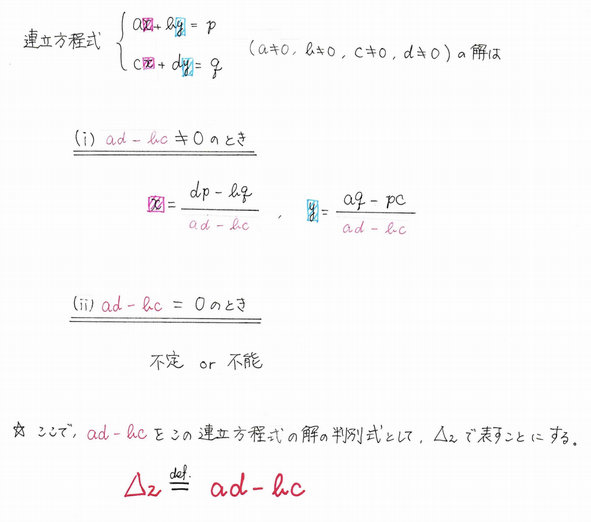 連立方程式 { ax + by = p
cx + dy = q (a≠0, b≠0, c≠0, d≠0) の解は
(i) ad - bc ≠ 0 のとき
x = (dp - bq)/(ad - bc) , y = (aq - pc)/(ad - bc)
(ii) ad - bc = 0 のとき
不定 or 不能
☆ ここで, ad-bc をこの連立方程式の解の判別式として, Δ₂ で表すことにする。
Δ₂ def. = ad - bc